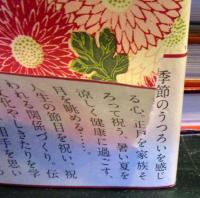 季節のうつろいを感じ
る心。正月を家族そ
ろって祝う、暑い夏を
涼しく健康に過ごす、
月を眺める……。
人生の節目を祝い、祝
われる関係づくり、伝
化や しきたりを学
相手を思い